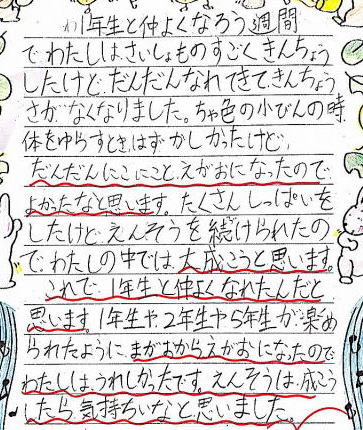 1年生と仲よくなろう週間
で、わたしは、さいしょものすごくきんちょう
したけど、だんだんなれてきて、きんちょう
さがなくなりました。ちゃ色の小びんの時、
体をゆらすとき、はずかしかったけど、
だんだんにこにこと、えがおになったので
よかったなと思います。たくさんしっぱいを
したけど、えんそうを続けられたの
で、わたしの中では、大成こうと思います。
これで、1年生と仲よくなれたんだと
思います。1年生や、2年生や、5年生が、楽め
られたように、まがおからえがおになったので
わたしは、うれしかったです。えんそうは、成こう
したら、気持ちいなと思いました。